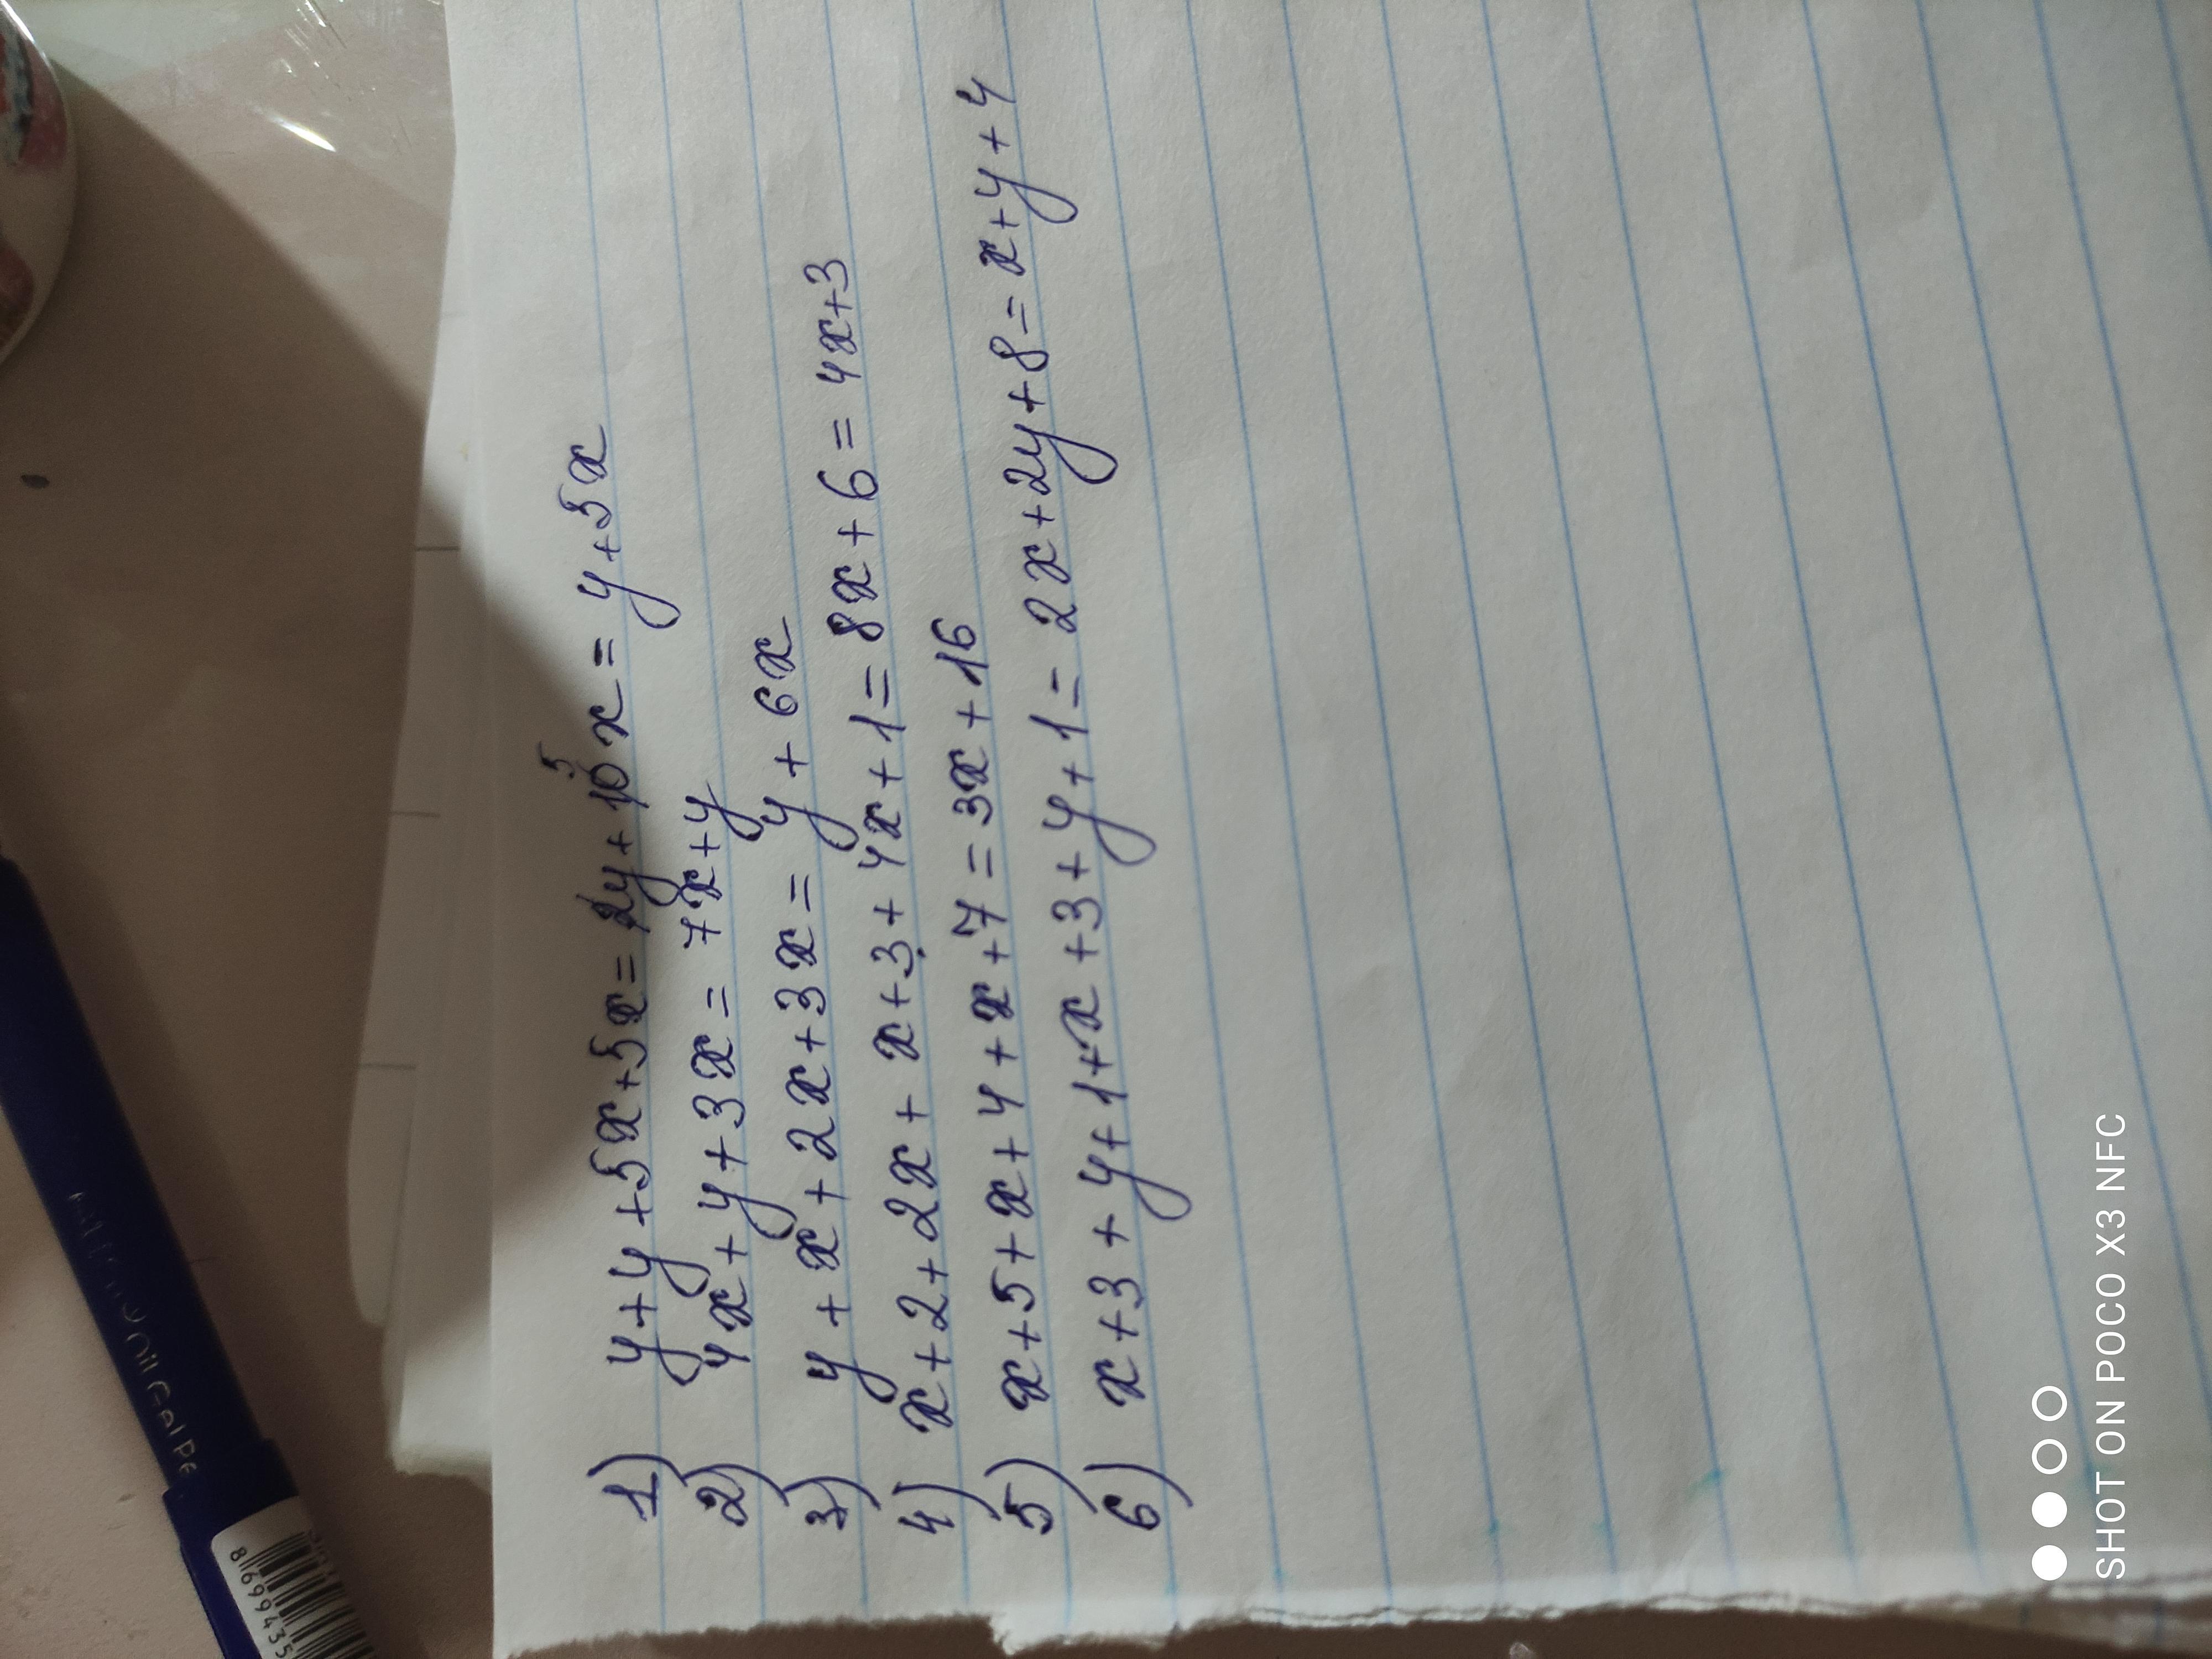 1) y+y+5x+5x=2y+10x=y+5x
5
2) 4x+y+3x=7x+y
3) y+x+2x+3x=y+6x
4) x+2+2x+x+3+4x+1=8x+6=4x+3
5) x+5+x+4+x+7=3x+16
6) x+3+y+1+x+3+y+1=2x+2y+8=x+y+4
8699435
SHOT ON POCO X3 NFC